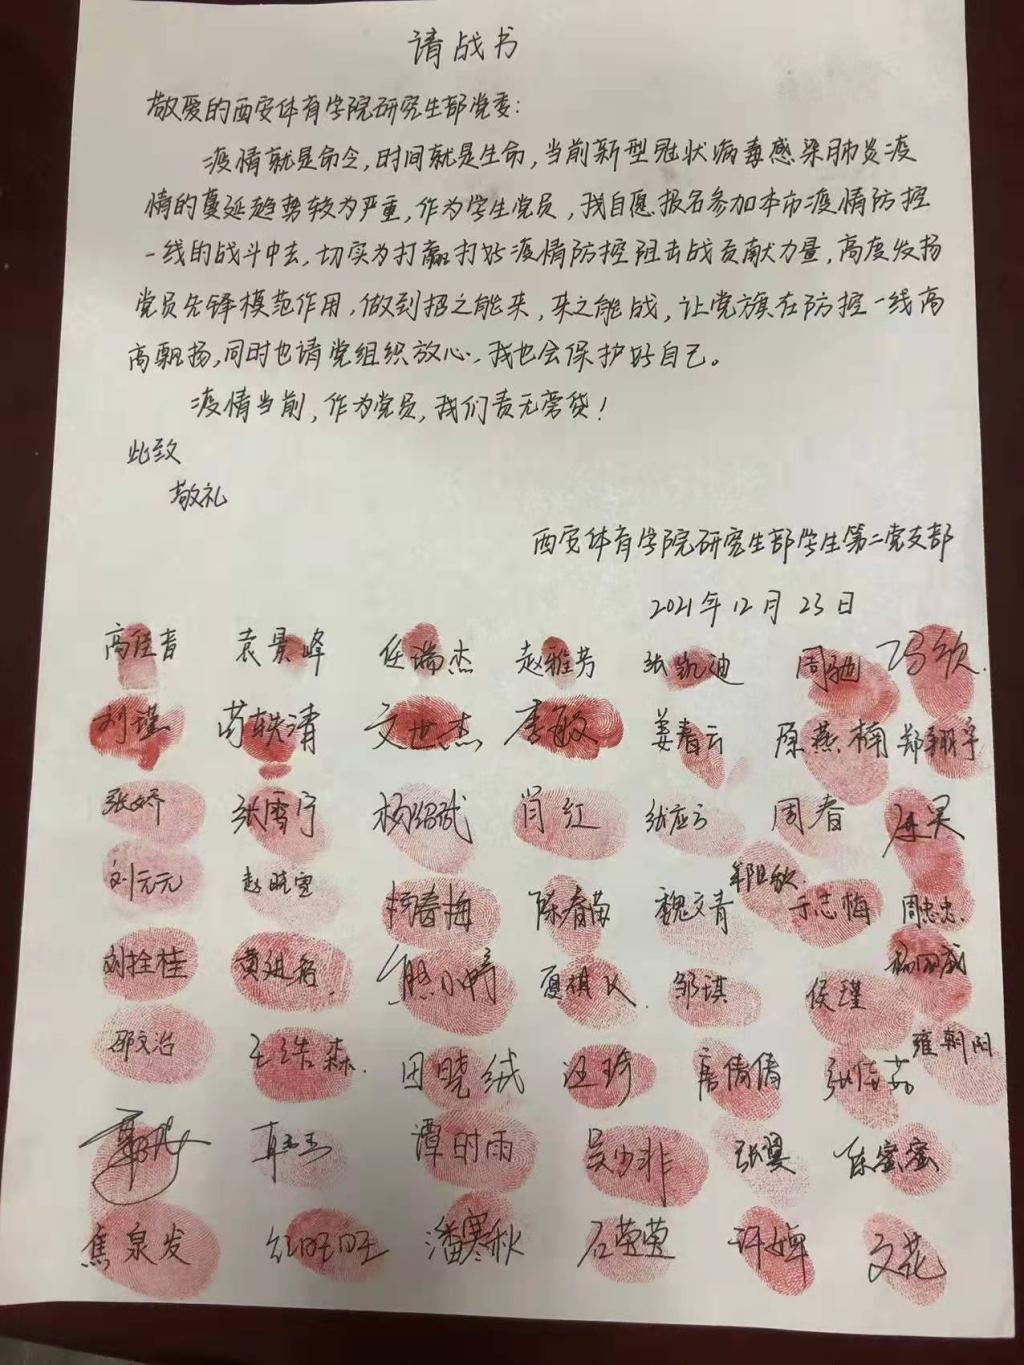 请战书
敬爱的西安体育学院研究生部党委：
疫情就是命令，时间就是生命，当前新型冠状病毒感染肺炎疫
情的蔓延趋势较为严重，作为学生党员，我自愿报名参加本市疫情防控
一线的战斗中去，切实为打赢打好疫情防控阻击战贡献力量，高度发扬
党员先锋模范作用，做到招之能来，来之能战，让党旗在防控一线高
高飘扬，同时也请党组织放心，我也会保护好自己。
疫情当前，作为党员，我们责无旁贷！
此致
敬礼
西安体育学院研究生部学生第二党支部
2021年12月23日
高佳音 袁景峰 任瑞杰 赵雅芳 张凯迪 周驰 冯欣
刘瑾 苟轶清 文世杰 李敏 姜春云 原燕楠 郑翔宇
张娇 张雪宁 杨绍斌 闫红 张应云 周春
刘元元 赵晓雪 陈春苗 魏文青 于志梅 周忠忠
刘拴桂 熊小婷 邹琪 侯瑾
邵文治 王浩森 田晓绒 汪琦 席倩倩 张倩茹 雍朝阳
谭时雨 吴少非 张昊 陈蜜蜜
焦泉发 潘寒秋 石莹莹 许婵 文花